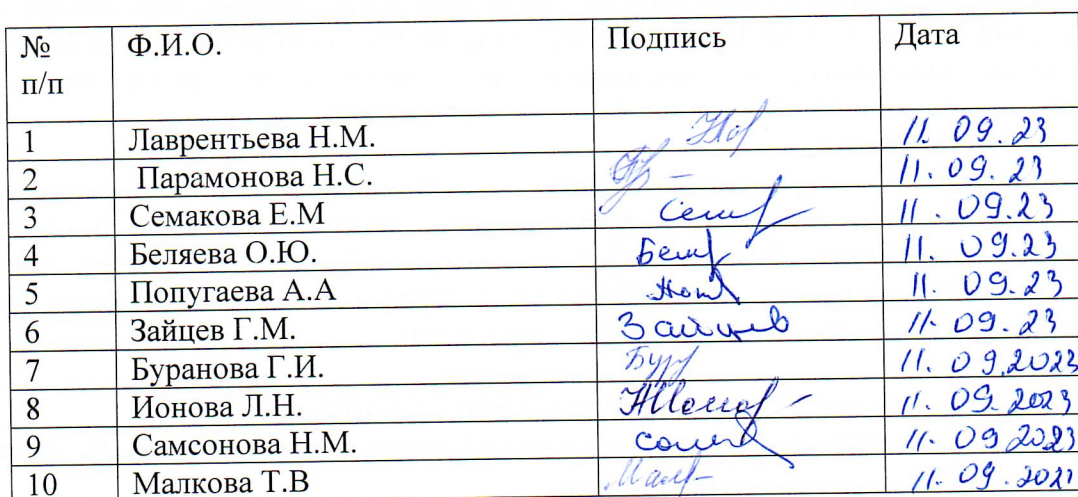 № п/п Ф.И.О. Подпись Дата
1 Лаврентьева Н.М. 11.09.23
2 Парамонова Н.С. 11.09.23
3 Семакова Е.М 11.09.23
4 Беляева О.Ю. 11.09.23
5 Попугаева А.А 11.09.23
6 Зайцев Г.М. Зайцев 11.09.23
7 Буранова Г.И. 11.09.2023
8 Ионова Л.Н. 11.09.2023
9 Самсонова Н.М. 11.09.2023
10 Малкова Т.В